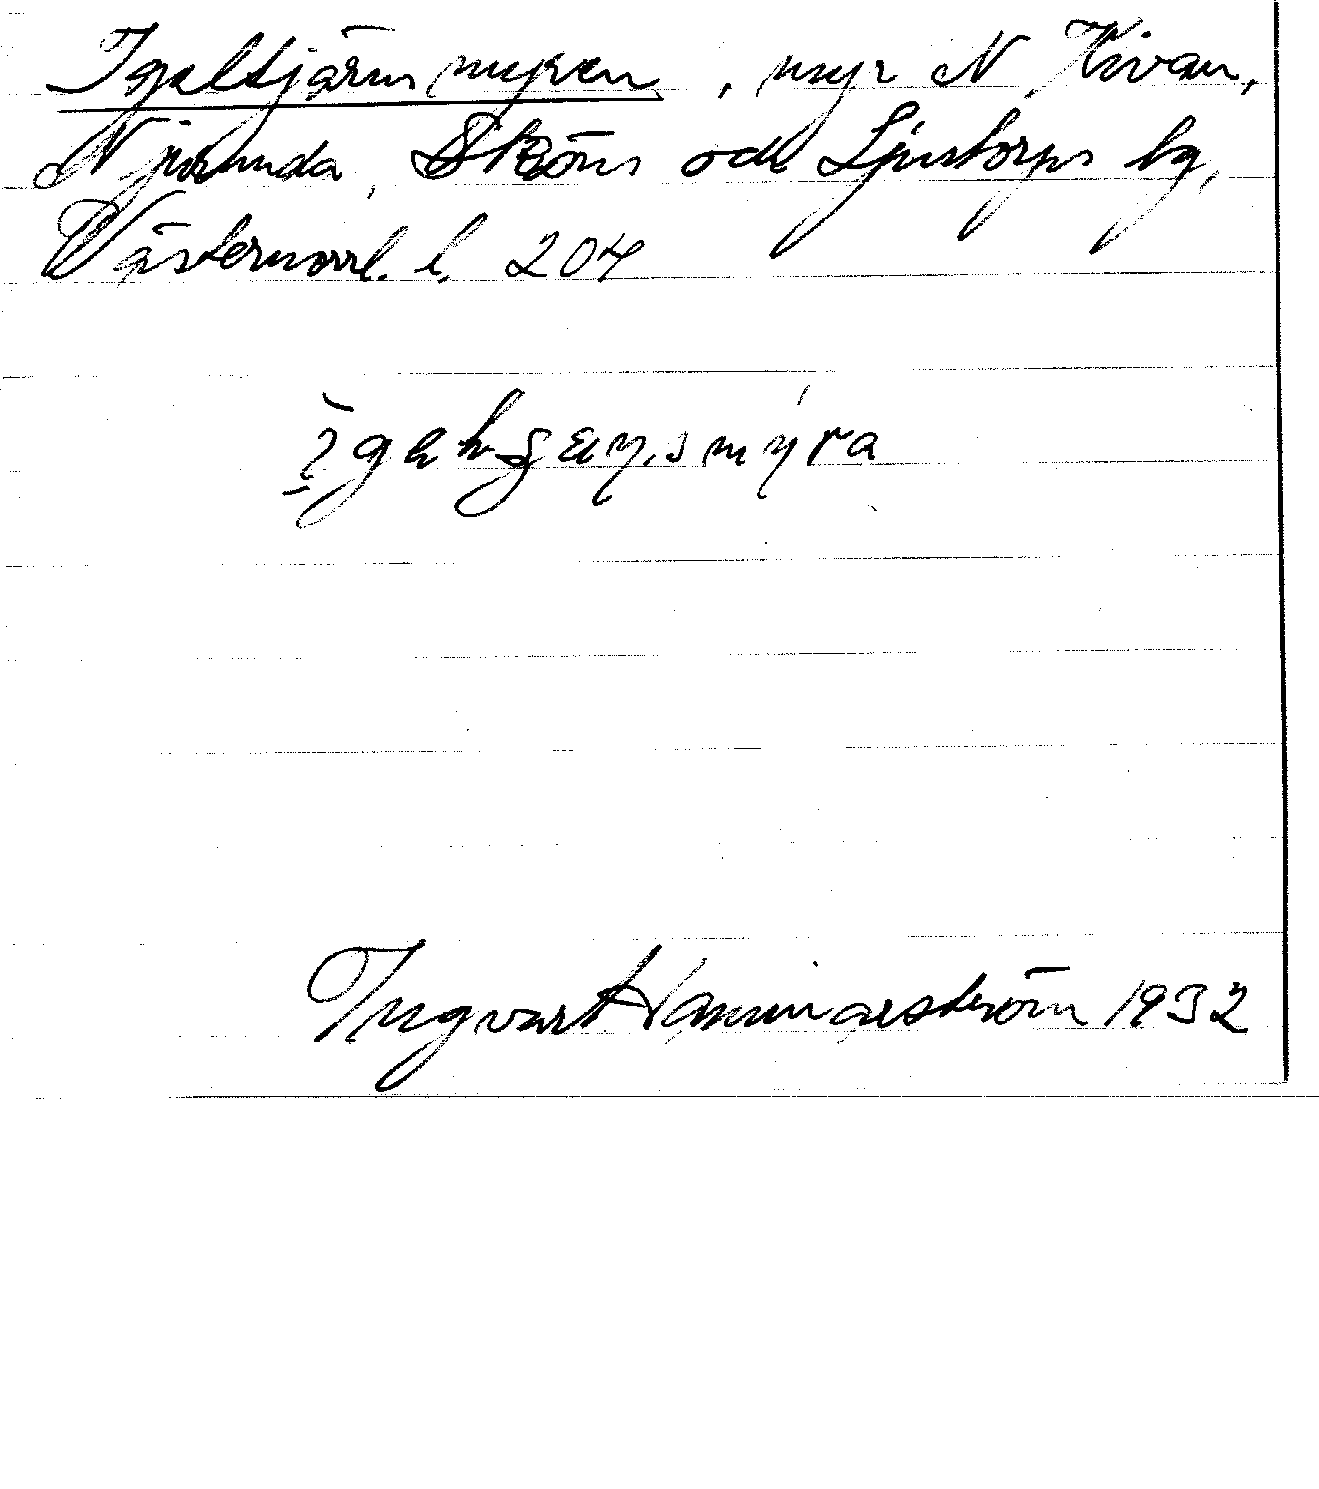 Igeltjärnsmyren, myr N Kivan,
Njurunda, Sköns och Ljustorps tg,
Västernorrl. l. 204
Ingvar Hammarström 1932